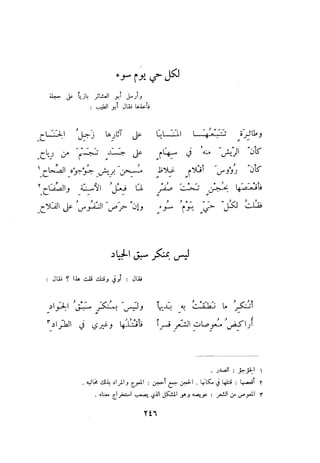 لكل حي يوم سوء
وأرسل أبو العشائر بازياً على حجلة
فأخذها فقال أبو الطيب :
وطائرةٍ تَتَبَّعُهَا المَنَايَا على آثارِها زَجِلُ الجَنَاحِ
كأنّ الرّيشَ منهُ في سِهامٍ على جَسَدٍ تَجَسّمَ من رِياحِ
كأنّ رُؤوسَ أقْلامٍ غِلاظٍ مُسِحنَ بريشِ جُؤجُؤهِ الصِّحاحِ١
فأقْعَصَها بحُجْنٍ تحتَ صُفْرٍ لها فِعْلُ الأسِنّةِ والصِّفاحِ٢
فقلتُ لكلّ حَيٍّ يَوْمُ سُوءٍ وإنْ حَرَصَ النّفُوسُ على الفَلاحِ
ليس بمنكر سبق الجياد
فقال : أوفي وقتك قلت هذا ؟ فقال :
أتُنكِرُ ما نَطَقْتُ بهِ بَديهاً وليسَ بمُنكَرٍ سَبقُ الجَوادِ
أُراكِضُ مُعوِصاتِ الشّعرِ قَسراً فأقْتُلُها وغَيري في الطِّرادِ٣
١ الجؤجؤ : الصدر .
٢ أقعصها : قتلها في مكانها . الحجن جمع أحجن : المعوج والمراد بذلك مخالبه .
٣ المعوص من الشعر : عويصه وهو المشكل الذي يصعب استخراج معناه .
٢٤٦